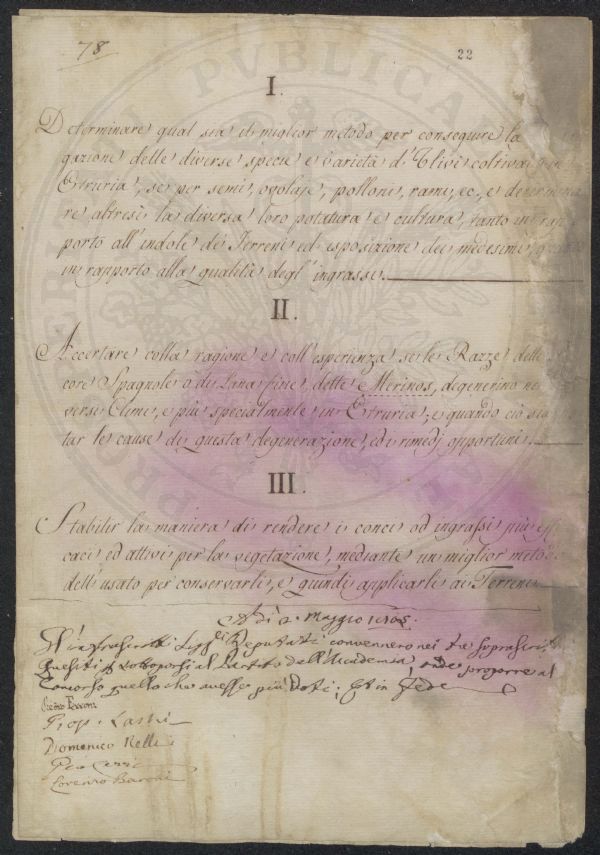 78
22
I.
Determinare qual sia il miglior metodo per conseguire la
gazione delle diverse specie e varietà d'Ulivi coltiva
Etruria, se per semi, ovolaje, polloni, rami, ec., e determina
re altresì la diversa loro potatura e cultura, tanto in rap
porto all'indole de' Terreni ed esposizione dei medesimi,
in rapporto alla qualità degl'ingrassi.
II.
Accertare colla ragione e coll'esperienza se le Razze delle
core Spagnole o di Lana fine, dette Merinos, degenerino ne
versi Climi, e più specialmente in Etruria; e quando ciò sia
tar le cause di questa degenerazione, ed i rimedj opportuni.
III.
Stabilir la maniera di rendere i conci od ingrassi più effi
caci ed attivi per la vegetazione, mediante un miglior metodo
dell'usato per conservarli, e quindi applicarli ai Terreni
A dì 2. Maggio 1805.
Gl'infrascritti Deputati convennero nei tre soprascri
Quesiti da sottoporsi al Partito dell'Accademia, onde proporre al
Concorso quello che avesse più Voti; Et in fede
Lastri
Domenico
Lorenzo Baroni
PVBLICA
PROSPERITATI